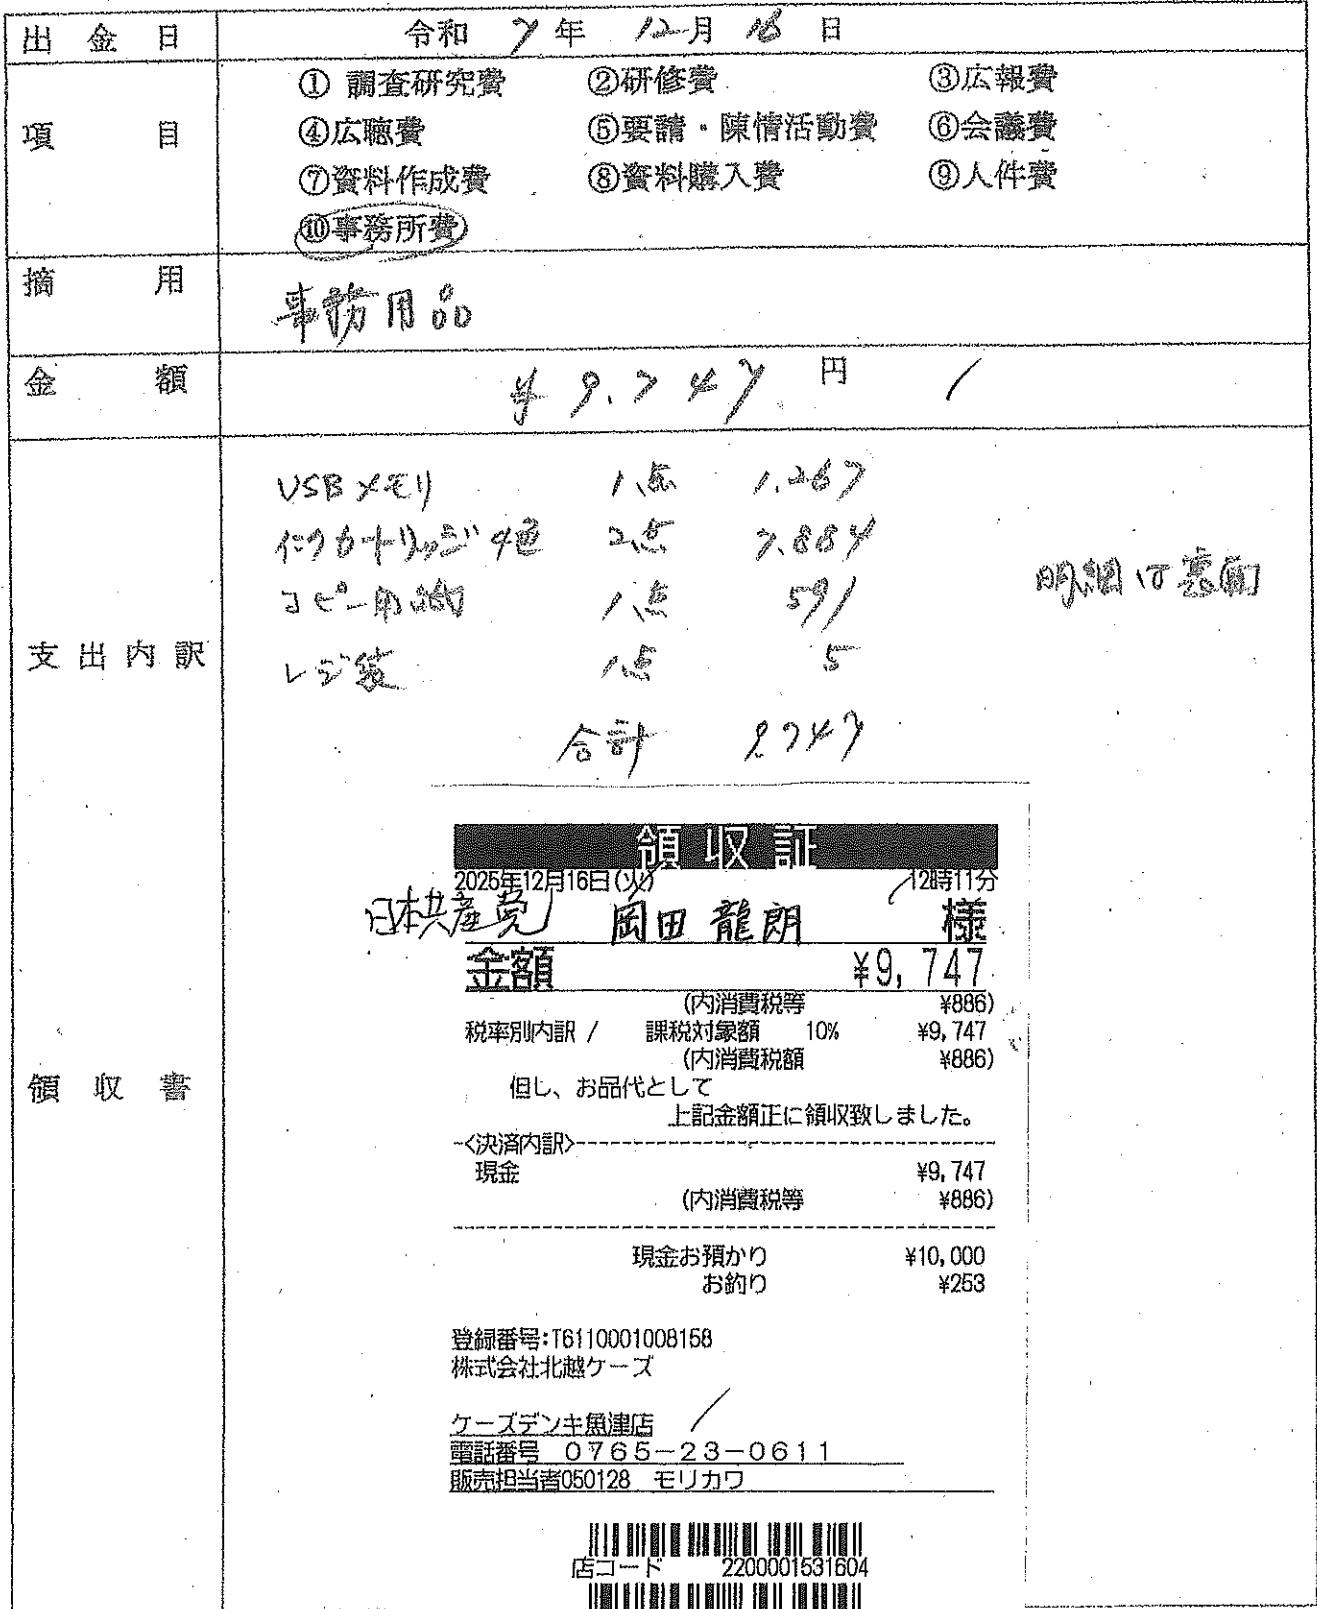 出金日 令和 7年 12月 16日
項目 ① 調査研究費 ②研修費 ③広報費
④広聴費 ⑤要請・陳情活動費 ⑥会議費
⑦資料作成費 ⑧資料購入費 ⑨人件費
⑩事務所費
摘用 事務用品
金額 ¥9,747円
支出内訳
USBメモリ 1点 1,267
インクカートリッジ 4色 2点 7,884
コピー用紙 1点 591
レジ袋 1点 5
合計 9747
明細は裏面
領収書
領収証
2025年12月16日(火) 12時11分
日本共産党 岡田 龍朗 様
金額 ¥9,747
(内消費税等 ¥886)
税率別内訳 / 課税対象額 10% ¥9,747
(内消費税額 ¥886)
但し、お品代として
上記金額正に領収致しました。
-<決済内訳>-
現金 ¥9,747
(内消費税等 ¥886)
現金お預かり ¥10,000
お釣り ¥253
登録番号:T6110001008158
株式会社北越ケーズ
ケーズデンキ魚津店
電話番号 0765-23-0611
販売担当者050128 モリカワ
店コード 2200001531604